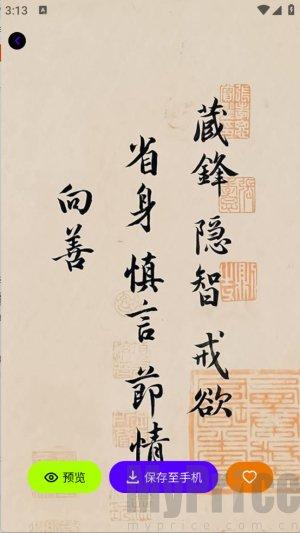 3:13
藏鋒隐智戒欲
省身慎言節情
向善
预览
保存至手机
MyPrice
www.myprice.com.cn